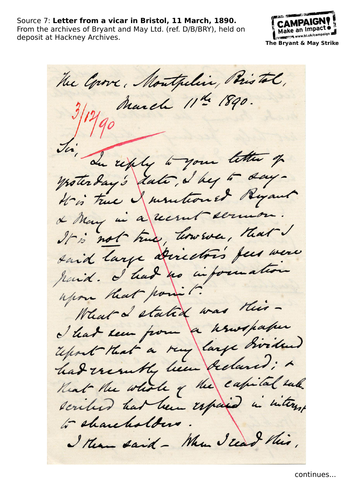 Source 7: Letter from a vicar in Bristol, 11 March, 1890.
From the archives of Bryant and May Ltd. (ref. D/B/BRY), held on
deposit at Hackney Archives.
CAMPAIGN!
Make an Impact
www.bl.uk/campaign
The Bryant & May Strike
The Grove, Montpelier, Bristol,
March 11th 1890.
3/12/90
Sir,
In reply to your letter of
yesterday's date, I beg to say -
It is true I mentioned Bryant
& May in a recent sermon.
It is not true, however, that I
said large directors fees were
paid. I had no information
upon that point.
What I stated was this -
I had seen from a newspaper
report that a very large dividend
had recently been declared; &
that the whole of the capital sub
scribed had been repaid in interest
to shareholders.
I then said - When I read this,
continues...